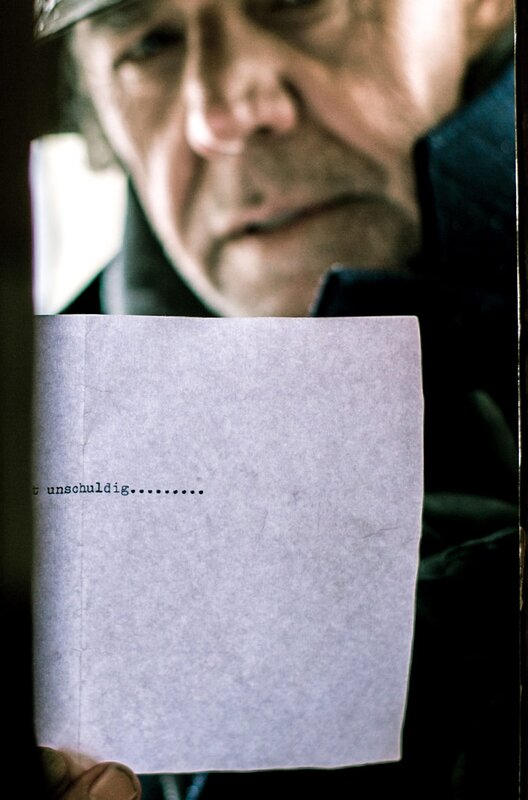 t unschuldig.........